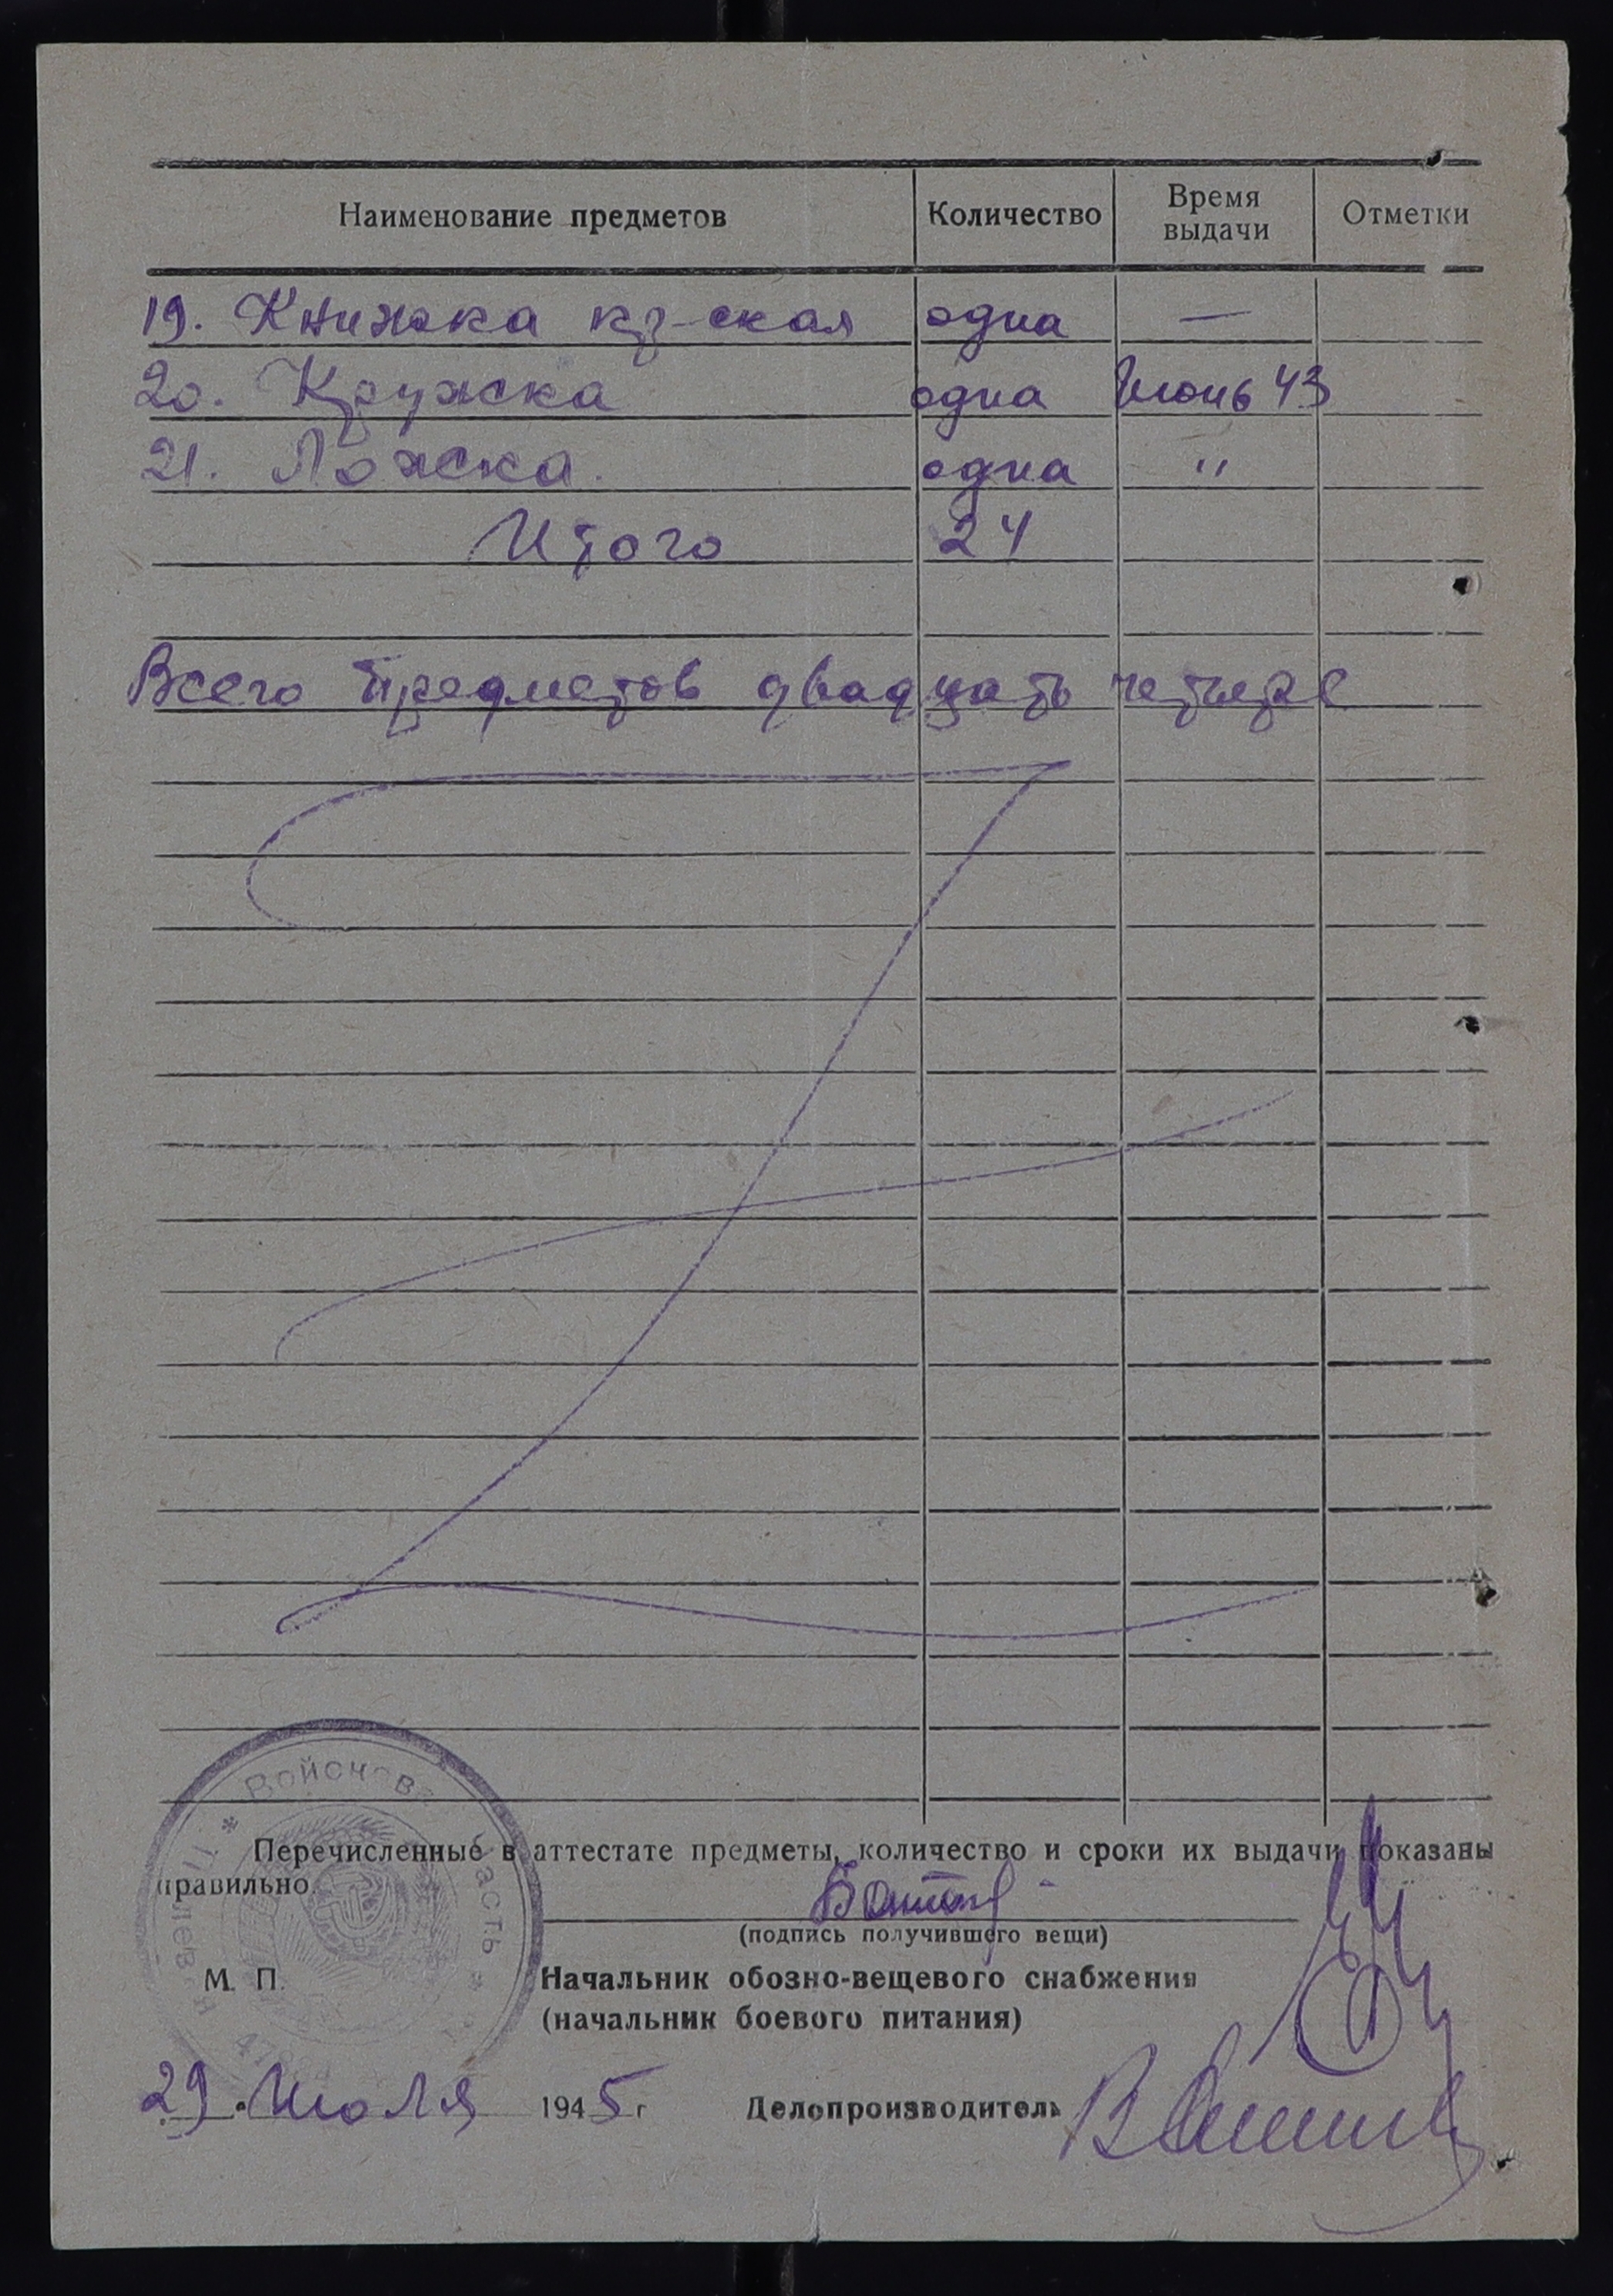 Наименование предметов Количество Время выдачи Отметки
19. Книжка кр-ская одна —
20. Кружка одна Июнь 43
21. Ложка. одна "
Итого 24
Всего предметов двадцать четыре
Перечисленные в аттестате предметы, количество и сроки их выдачи показаны
правильно.
(подпись получившего вещи)
М. П. Начальник обозно-вещевого снабжения
(начальник боевого питания)
29 Июля 1945 г Делопроизводитель